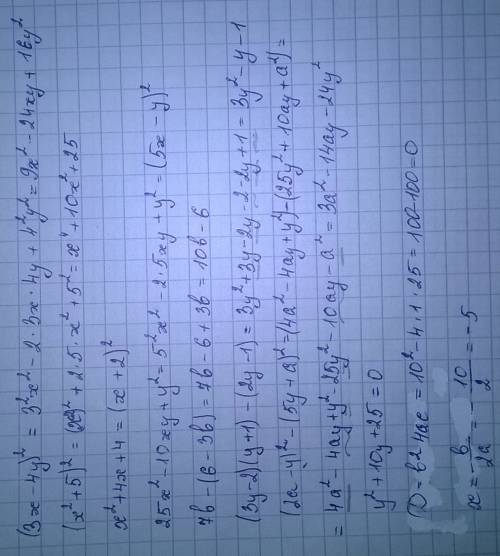 (3x-4y)² = 3²x² - 2·3x·4y + 4²y² = 9x² - 24xy + 16y²
(x²+5)² = (x²)² + 2·5·x² + 5² = x⁴ + 10x² + 25
x²+4x+4 = (x+2)²
25x² - 10xy + y² = 5²x² - 2·5xy + y² = (5x - y)²
7b - (6-3b) = 7b - 6 + 3b = 10b - 6
(3y-2)(y+1) - (2y-1) = 3y² + 3y - 2y - 2 - 2y + 1 = 3y² - y - 1
(2a-y)² - (5y+a)² = (4a² - 4ay + y²) - (25y² + 10ay + a²) =
= 4a² - 4ay + y² - 25y² - 10ay - a² = 3a² - 14ay - 24y²
y² + 10y + 25 = 0
D = b2 4ac = 10² - 4·1·25 = 100-100 = 0
x = - b/2a = - 10/2 = -5